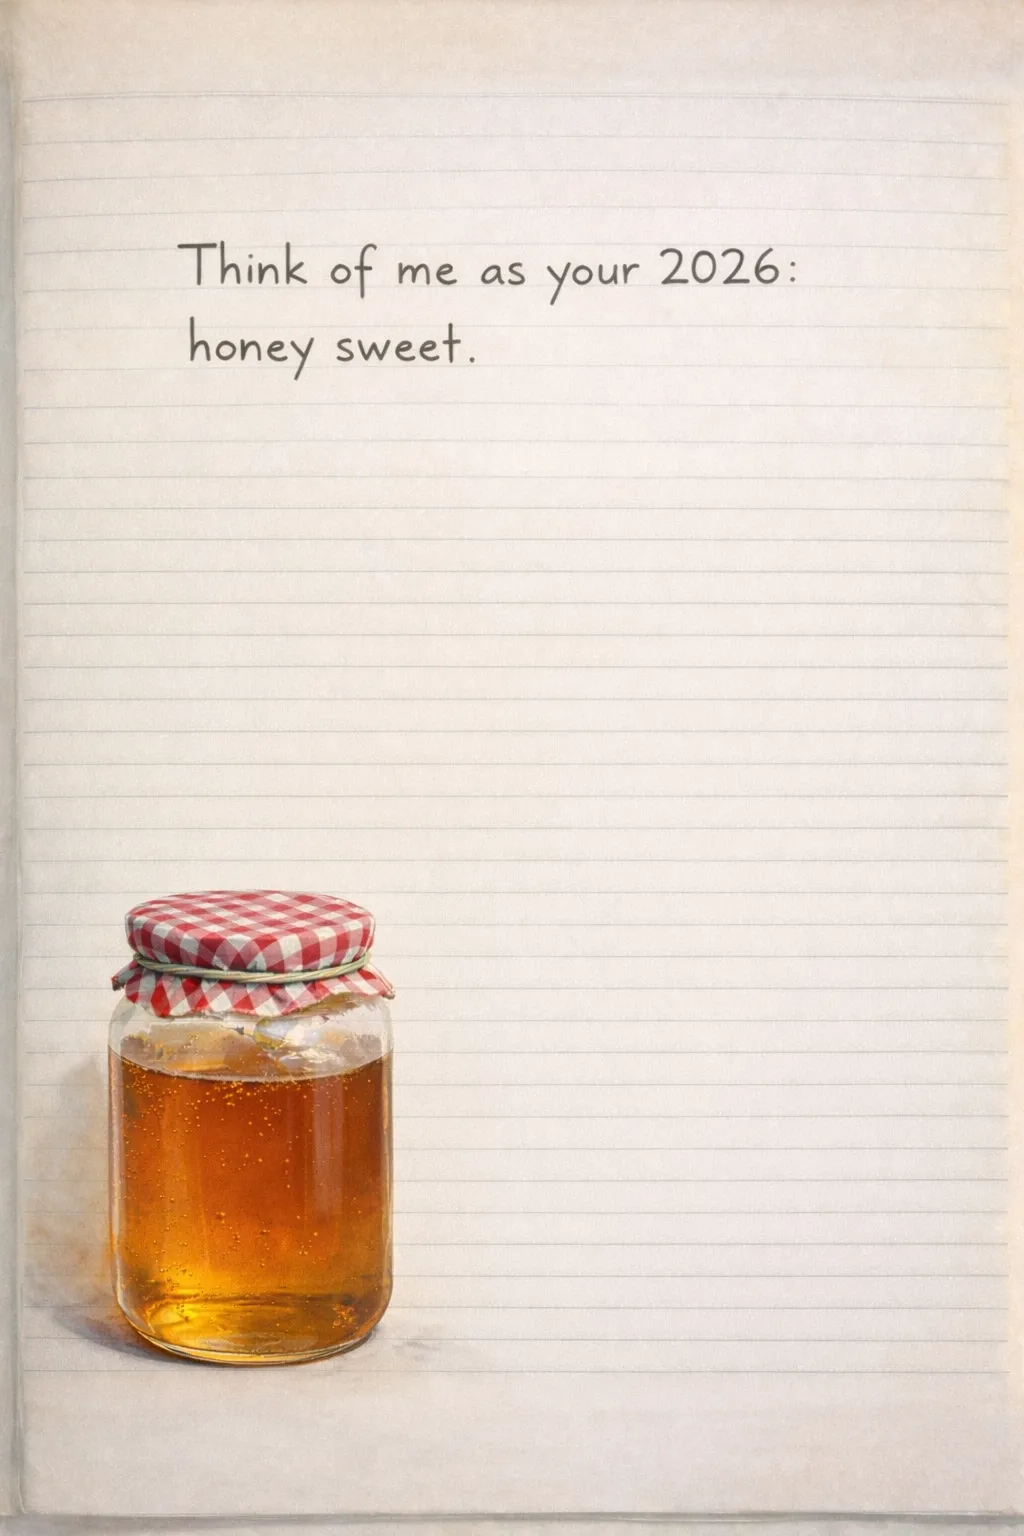 Think of me as your 2026:
honey sweet.